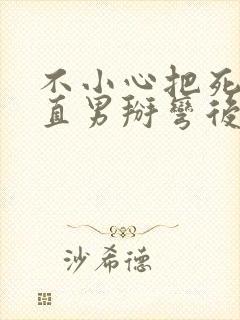 不小心把死
直男掰彎後
沙希德